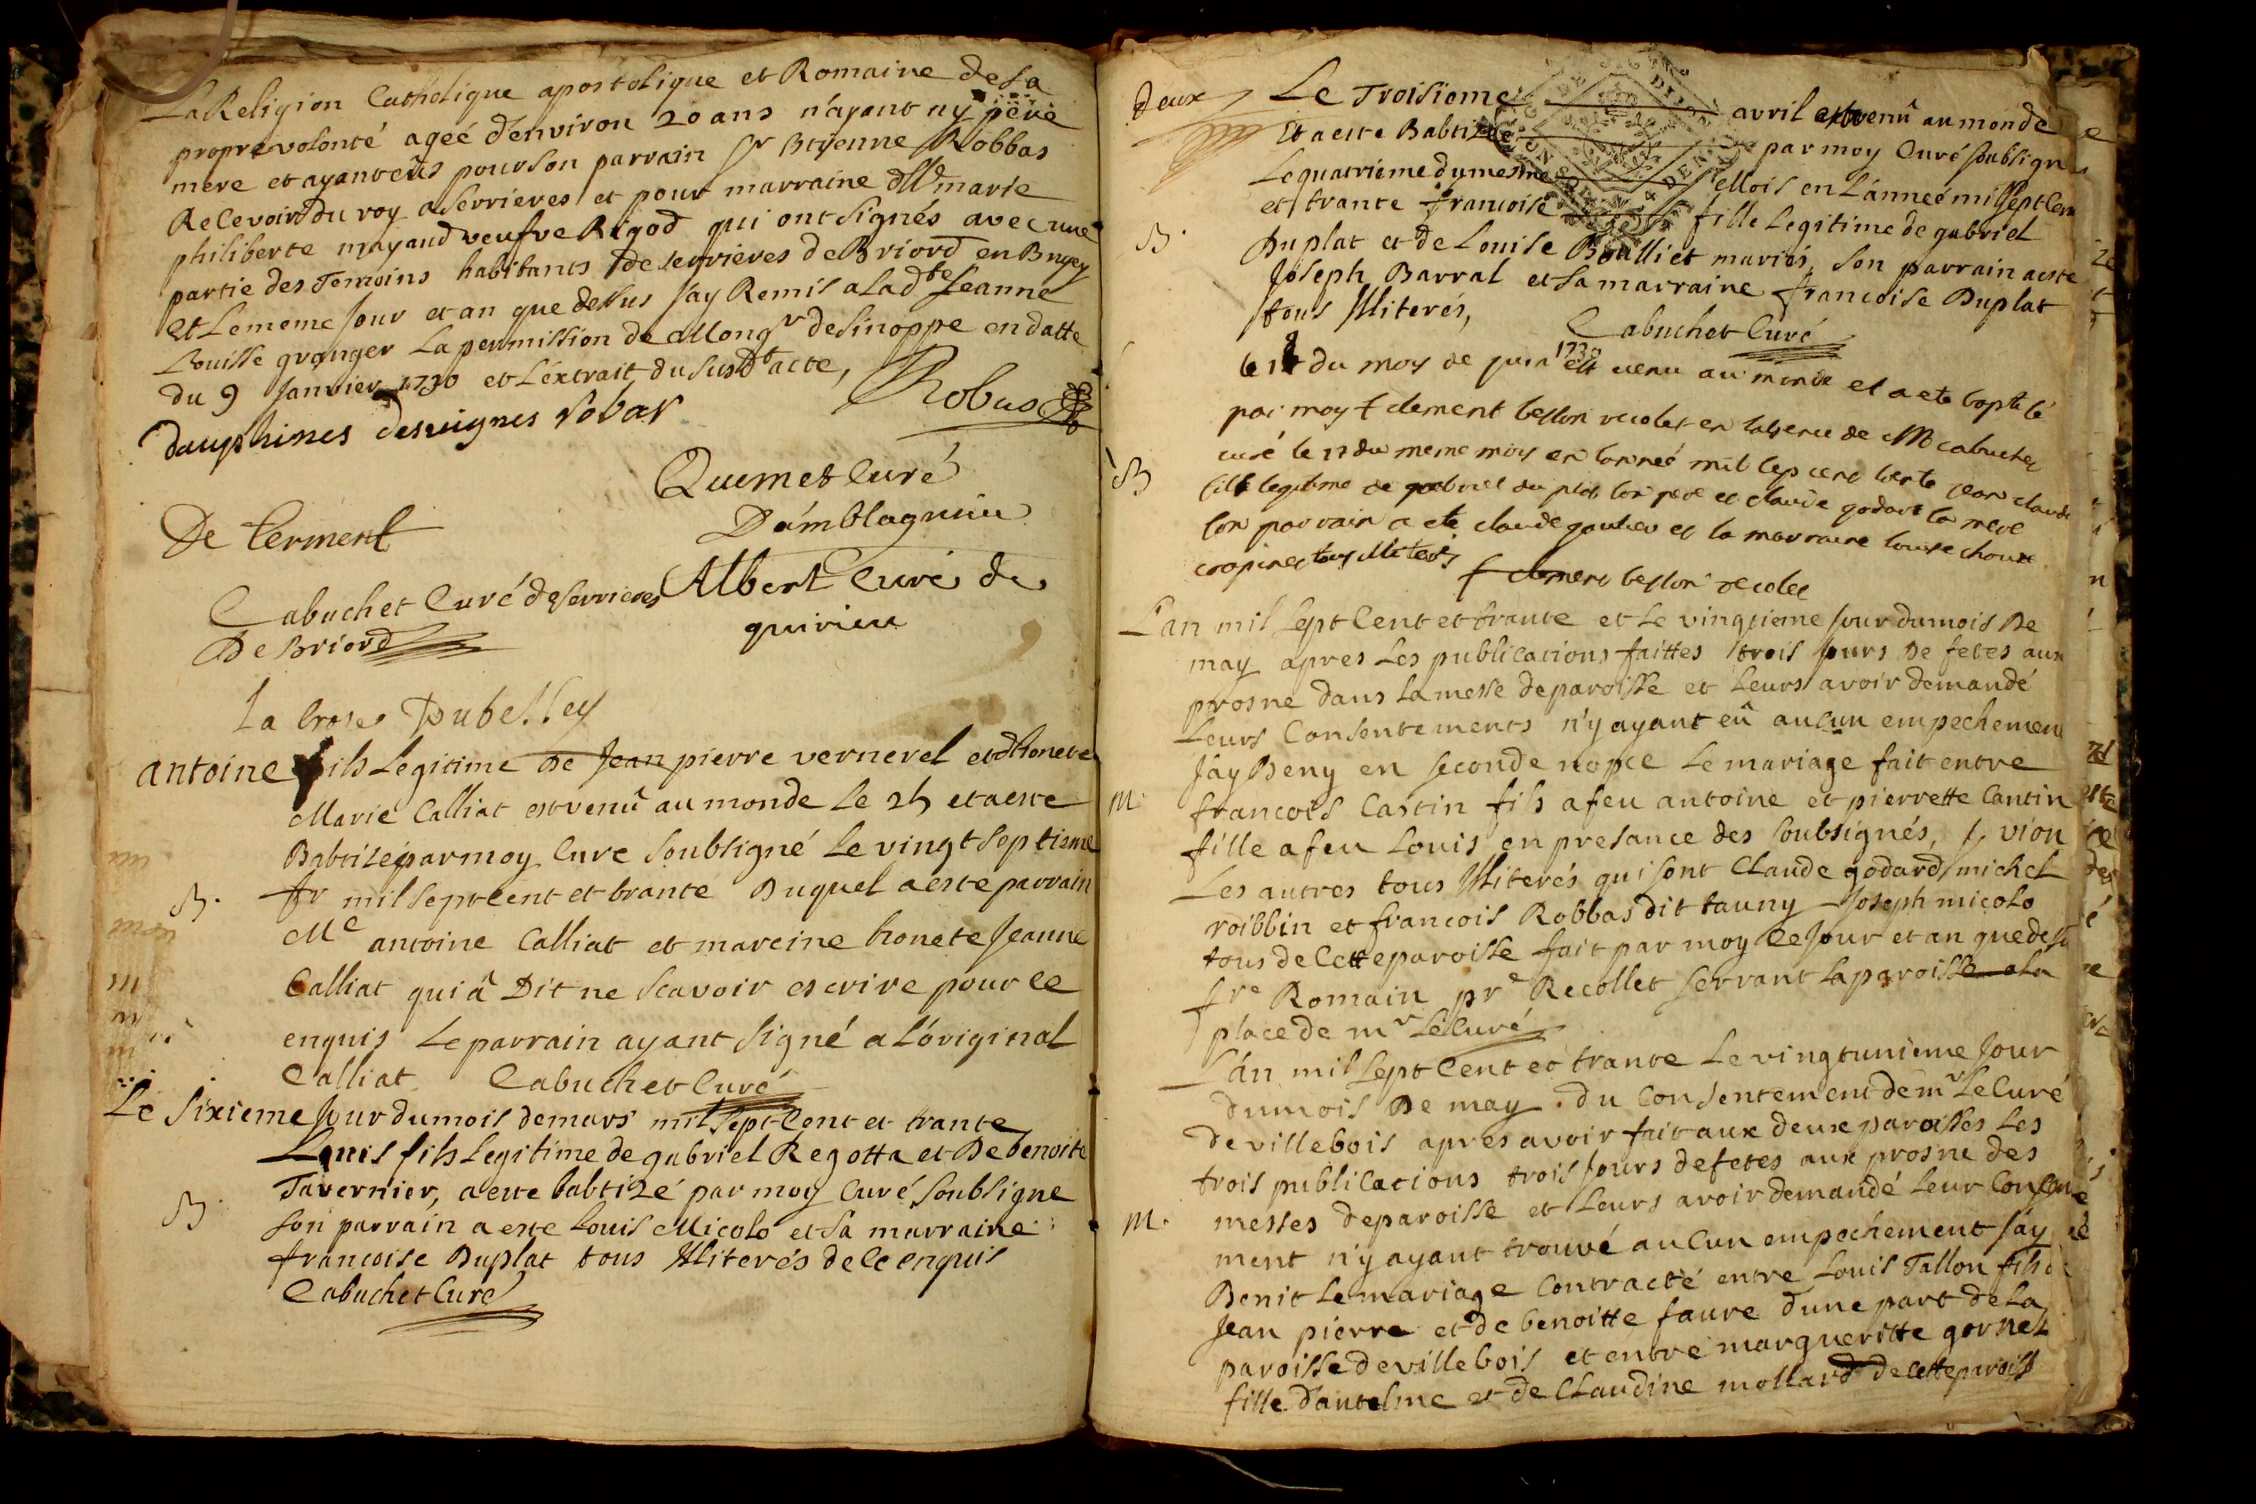 La Religion Catholique apostolique et Romaine de sa
propre volonté ageé d'environ 20 ans n'ayant ny pere
mere et ayant eûs pour son parrain Sr Etyenne Robbas
Recevoir du roy a Serrieres et pour marraine dlle marie
philiberte mayand veufve Rigod qui ont signés avec une
partie des Temoins habitants de serrieres de Briord en Bugey
et Le meme Jour et an que dessus J'ay Remis a Ladte Jeanne
Louisse granger La permission de Mongr de Sinoppe en datte
du 9 Janvier 1730 et L'extrait du susdt acte,
Robas
dauphines desvignes robas
Quemet Curé
D'amblagnieu
De Cerment
Cabuchet Curé de serrieres
De Briord
Albert Curé de
quirieu
La Crose Dubelley
antoine fils Legitime de Jean pierre vernerel et d'honete
Marie Calliat est venû au monde Le 25 et a este
Babtizé par moy Cure Soubsigné Le vingt septieme
fr mil sept cent et trante Duquel a este parrain
Me antoine Calliat et mareine honete Jeanne
Calliat qui â Dit ne scavoir escrire pour ce
enquis Le parrain ayant signé a L'original
Calliat Cabuchet Curé
B.
Le Sixieme Jour du mois de mars mil sept Cent et trante
Louis fils Legitime de gabriel Regotta et De benoite
Tavernier, a este babtizé par moy Curé Soubsigne
son parrain a este Louis Micolo et sa marraine
francoise Duplat tous Illiterés de ce enquis
Cabuchet Curé
B.
deux
Le Troisieme avril est venû au monde
Et a este Babtizée par moy Curé soubsigne
Le quatrieme du mesme Mois en L'anneé mil sept Cent
et trante francoise fille Legitime de gabriel
Duplat et de Louise Boulliet mariés, son parrain a este
Joseph Barral et sa marraine francoise Duplat
tous Illiterés,
Cabuchet Curé
B.
le du moy de juin 1730 est venu au monde et a ete baptisé
par moy f clement beslon recolet en labsence de Mr cabuchet
curé le 17 du meme mois en lanneé mil sept cent trente jean claude
fils legitime de gabriel du plat son pere et claude godard sa mere
son parrain a ete claude gautier et la marraine louise choux
tous illiterés
f clement beslon recolet
B
L'an mil sept Cent et trante et Le vingtieme Jour du mois De
may apres Les publications faittes trois Jours De fetes aux
prosne dans La messe de paroisse et Leurs avoir demandé
Leurs Consentements n'y ayant eû aucun empechement
J'ay Beny en seconde nopce Le mariage fait entre
francois Castin fils a feu antoine et pierrette Cantin
fille a feu Louis en presance des soubsignés, vion
Les autres tous Illiterés qui sont Claude godard michel
roibbin et francois Robbas dit tauny Joseph micolo
tous de Cette paroisse fait par moy Ce Jour et an que dessu
fre Romain pre Recollet servant La paroisse a La
place de mr Le Curé
M.
L'an mil sept Cent et trante Le vingt unieme Jour
du mois De may du Consentement de mr Le Curé
de villebois apres avoir fait aux deux paroisses Les
trois publications trois Jours de fetes aux prosne des
messes de paroisse et Leurs avoir demandé Leur Consente
ment n'y ayant trouvé aucun empechement J'ay
Benit Le mariage Contracté entre Louis Tallon fils de
Jean pierre et de benoitte faure d'une part de La
paroisse de villebois et entre margueritte gornet
fille d'antelme et de Claudine mollard de cette paroiss
M.